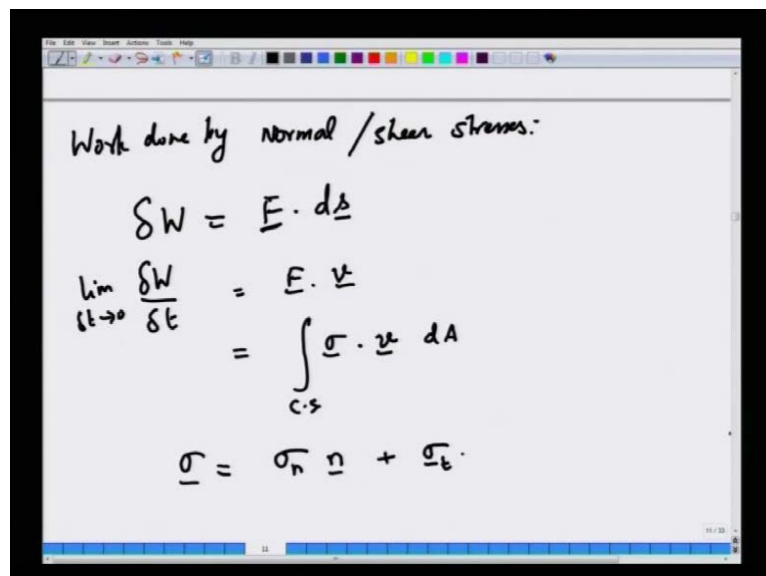 File Edit View Insert Actions Tools Help
Work done by Normal / shear stresses:-
δW = F · ds
lim δt→0 δW/δt = F · v
= ∫ σ · v dA
C.S
σ = σn n + σt.
11 / 33
11